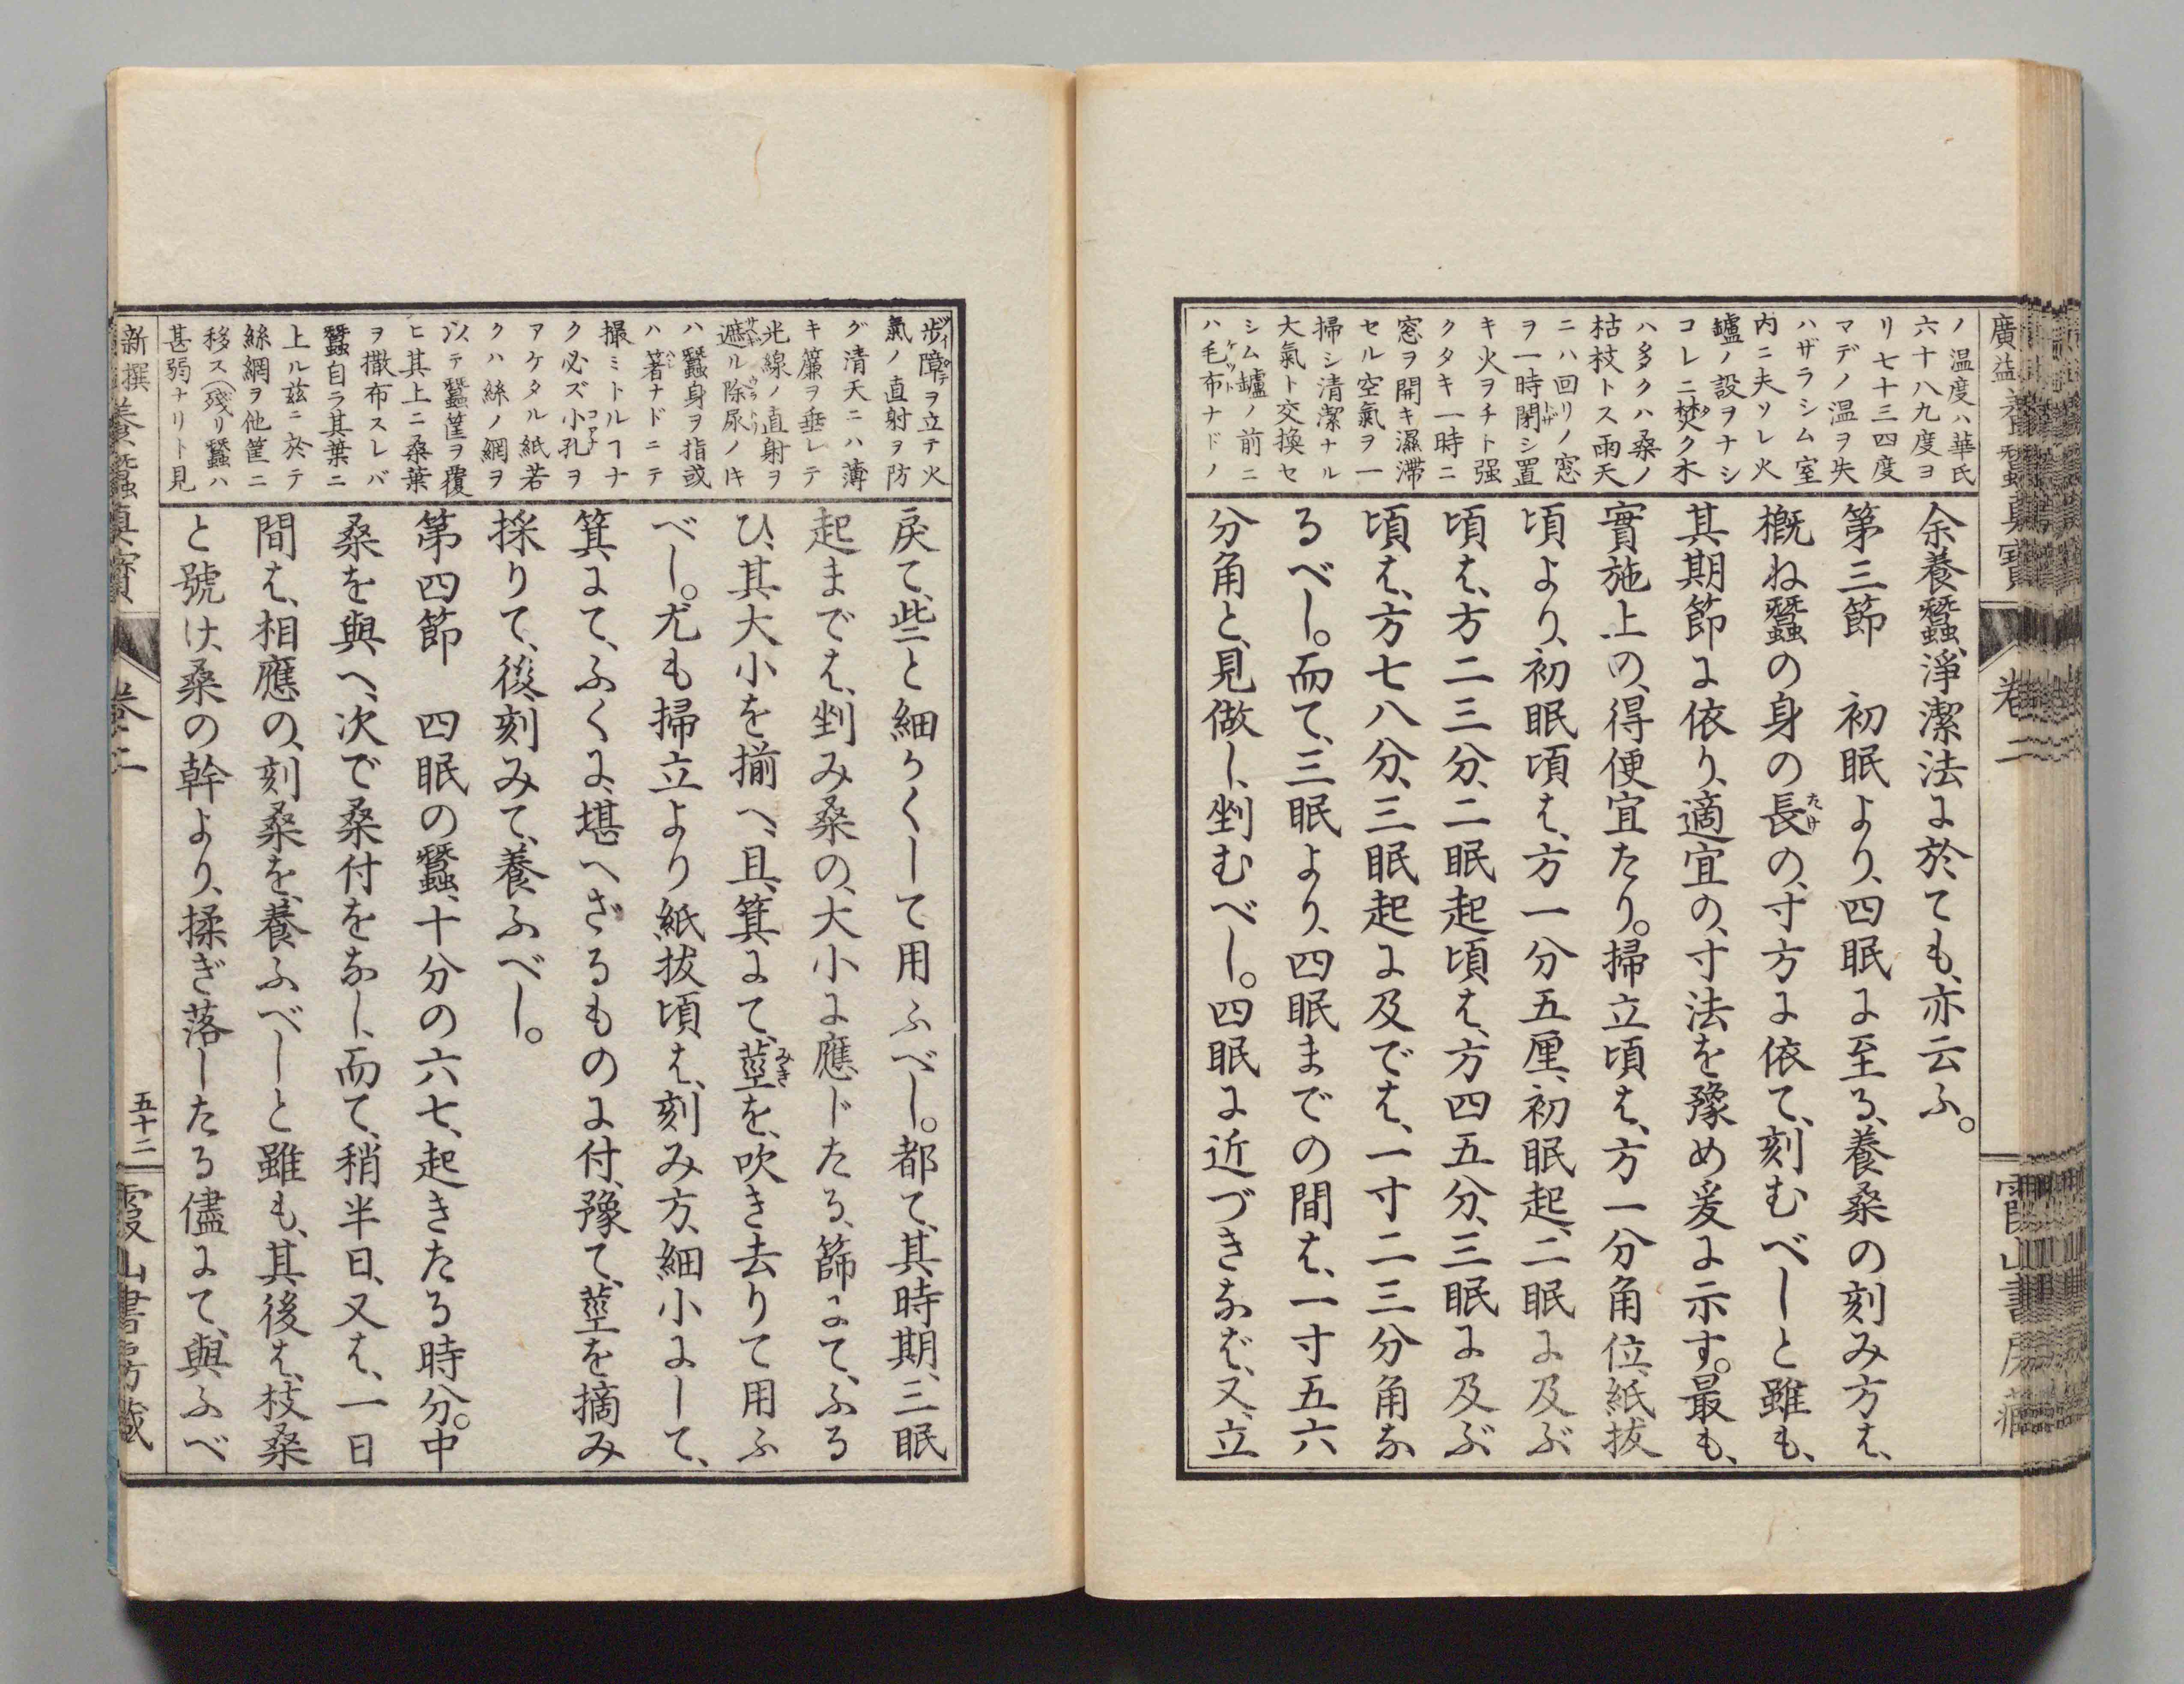 ノ温度ハ華氏
六十八九度ヨ
リ七十三四度
マデノ温ヲ失
ハザラシム室
内ニ夫ソレ火
鑪ノ設ヲナシ
コレニ焚ク木
ハ多クハ桑ノ
枯枝トス雨天
ニハ回リノ窓
ヲ一時閉シ置
キ火ヲチト强
クタキ一時ニ
窓ヲ開キ濕滯
セル空氣ヲ一
掃シ清潔ナル
大氣ト交換セ
シム鑪ノ前ニ
ハ毛布ナドノ
余養蠶、淨潔法に於ても、亦云ふ。
第三節　初眠より、四眠に至る、養桑の刻み方は、
概ね蠶の身の長の、寸方に依て、刻むべしと雖も、
其期節に依り、適宜の、寸法を豫め爰に示す。最も、
實施上の、得便宜たり。掃立頃は、方一分角位、紙拔
頃より、初眠頃は、方一分五厘、初眠起、二眠に及ぶ
頃は、方二三分、二眠起頃は、方四五分、三眠に及ぶ
頃は、方七八分、三眠起に及では、一寸二三分角な
るべし。而て、三眠より、四眠までの間は、一寸五六
分角と、見做し、剉むべし。四眠に近づきなば、又、立
卷二
歩障ヲ立テ火
氣ノ直射ヲ防
グ清天ニハ薄
キ簾ヲ垂レテ
光線ノ直射ヲ
遮ル除尿ノキ
ハ蠶身ヲ指或
ハ箸ナドニテ
撮ミトルヿナ
ク必ズ小孔ヲ
アケタル紙若
クハ絲ノ網ヲ
以テ蠶筐ヲ覆
ヒ其上ニ桑葉
ヲ撒布スレバ
蠶自ラ其葉ニ
上ル玆ニ於テ
絲網ヲ他筐ニ
移ス(殘リ蠶ハ
甚弱ナリト見
戾て、些と細かくして用ふべし。都て、其時期、三眠
起までは、剉み桑の、大小に應じたる、篩にて、ふる
ひ、其大小を揃へ、且、箕にて、莖を、吹き去りて用ふ
べし。尤も掃立より紙拔頃は、刻み方、細小にして、
箕にて、ふくに、堪へざるものに付、豫て、莖を摘み
採りて、後、刻みて、養ふべし。
第四節　四眠の蠶、十分の六七、起きたる時分。中
桑を與へ、次で桑付をなし、而て、稍半日、又は、一日
間は、相應の、刻桑を、養ふべしと雖も、其後は、枝桑
と號け、桑の幹より、揉ぎ落したる儘にて、與ふべ
新撰養蠶眞寶　卷二　五十二　霞山書房藏